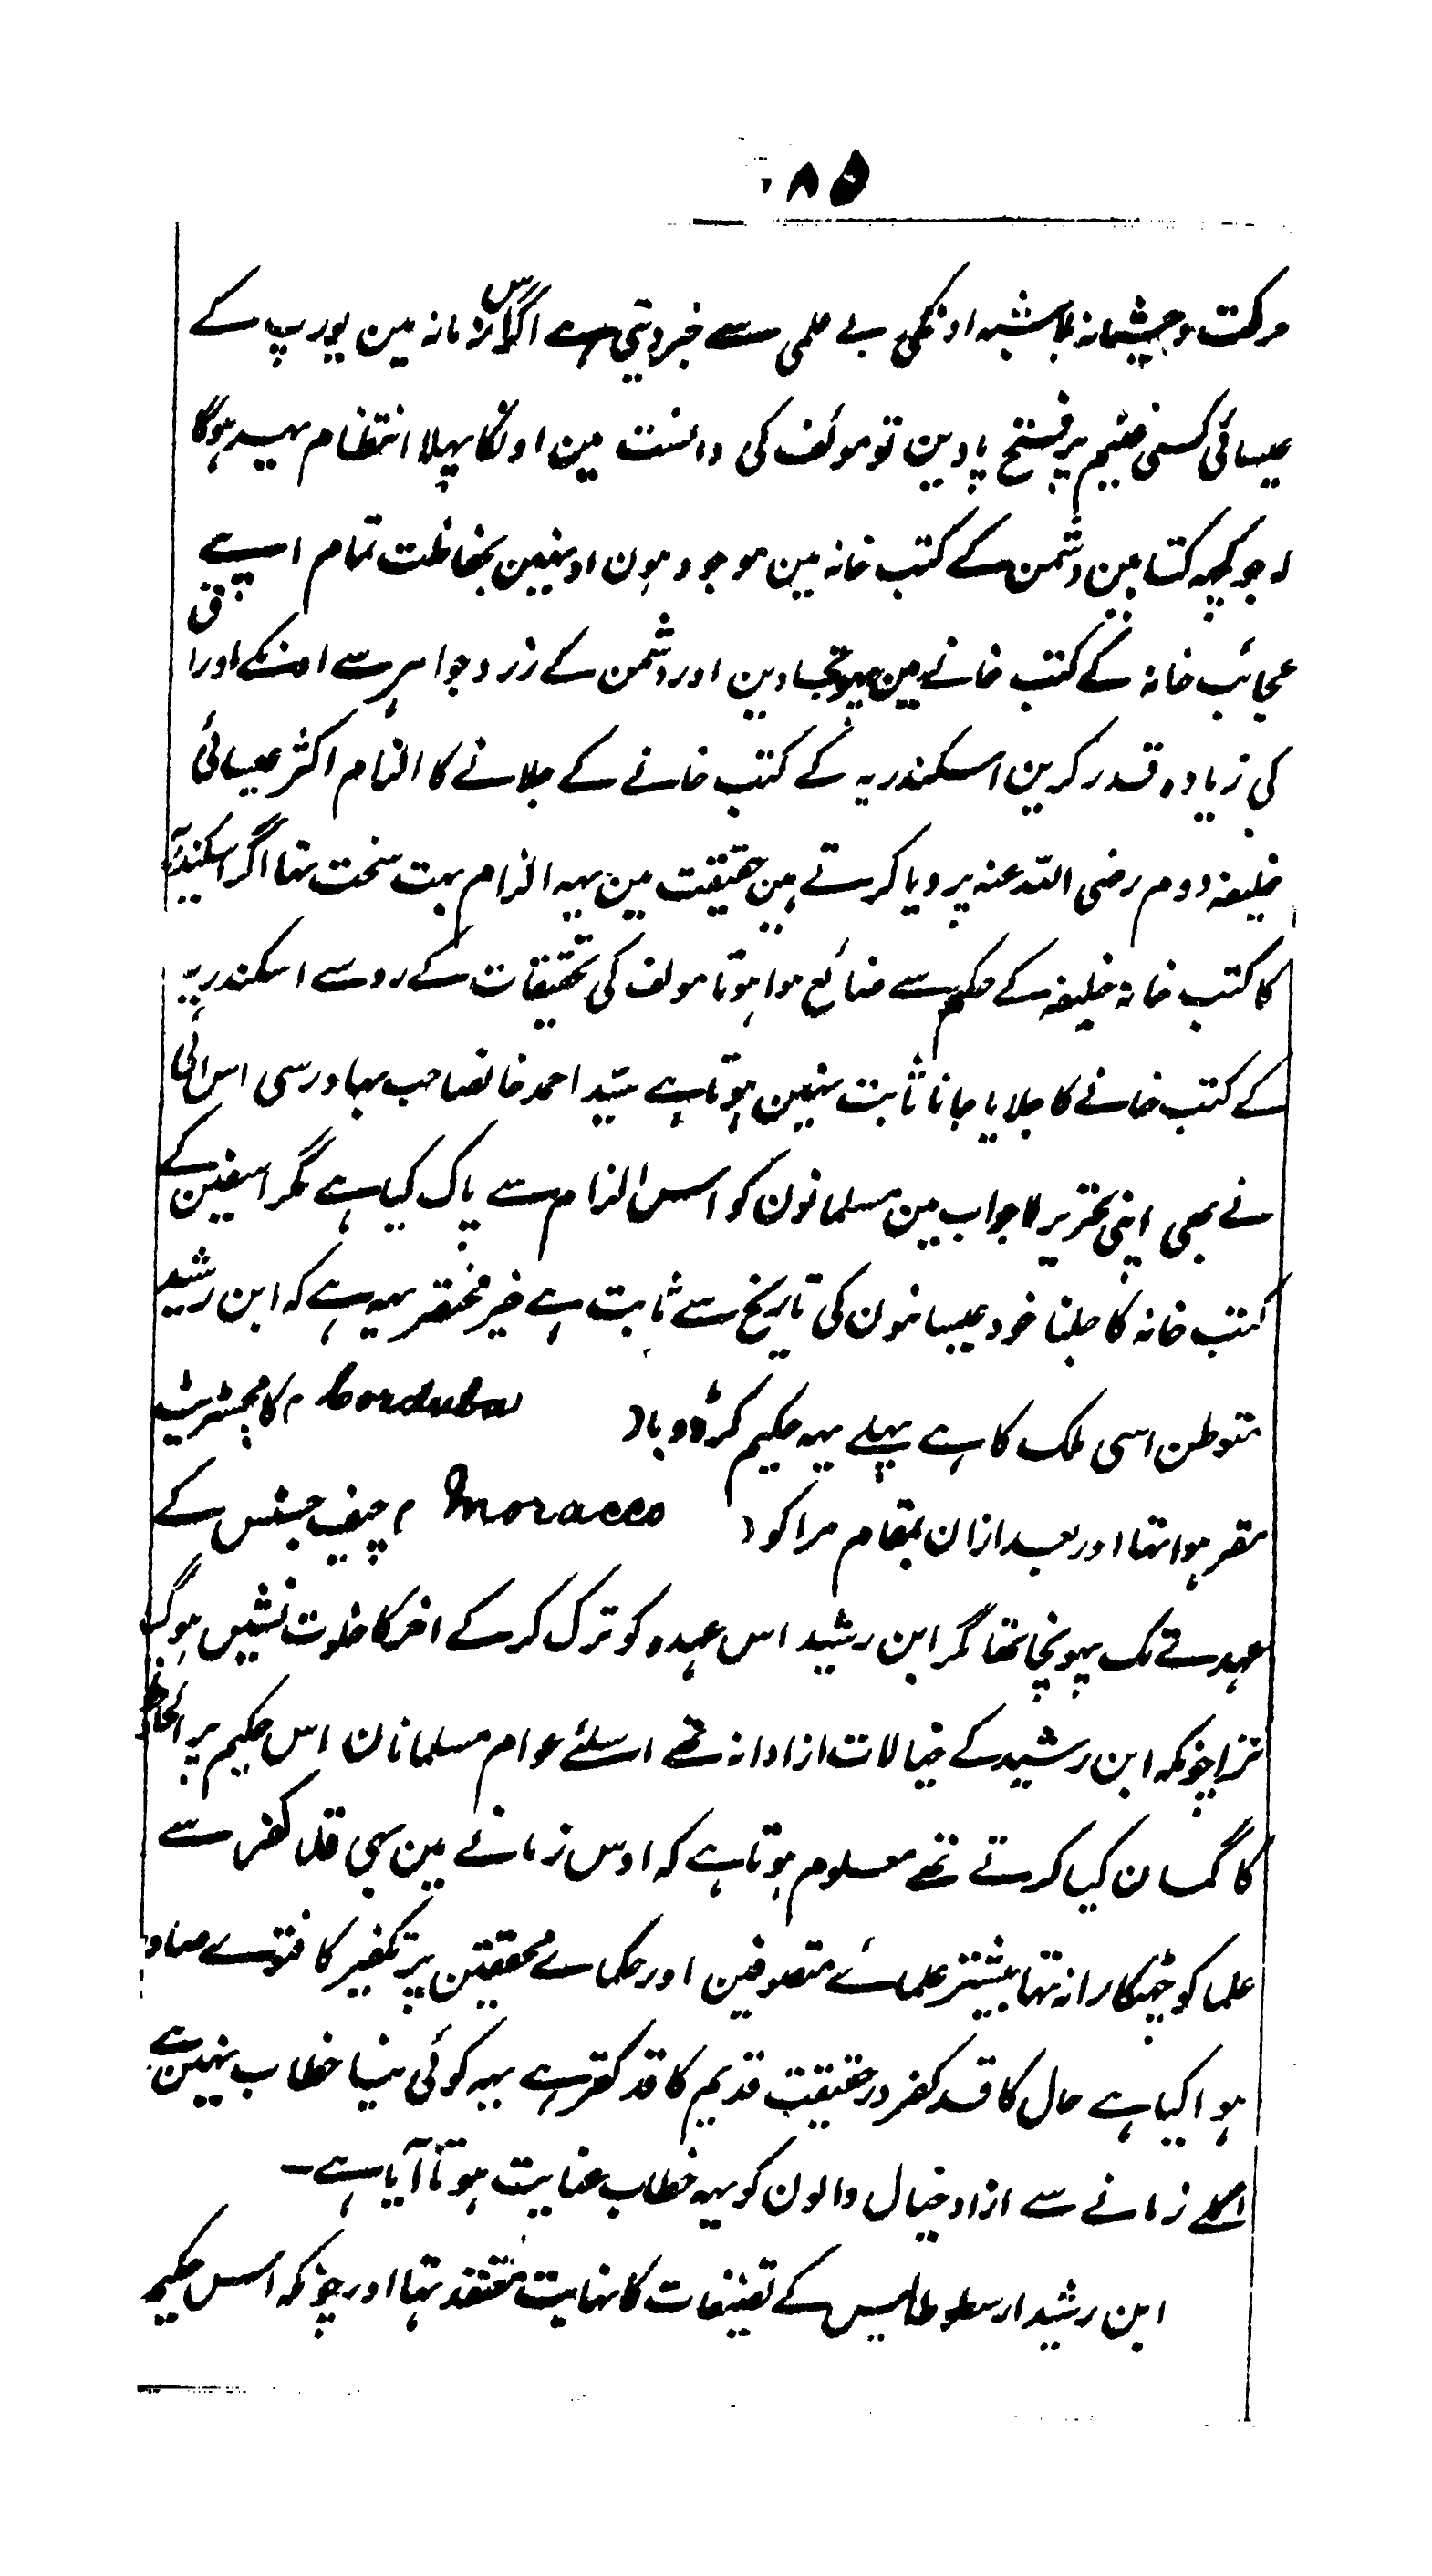 ۸۵
حرکت وحشیانہ بلاشبہہ اونکی بے علمی سے خبر دیتی ہے اگر اس زمانہ مین یورپ کے
عیسائی کسی غنیم پر فتح پاوین تو مولف کی دانست مین اونکا پہلا انتظام یہہ ہوگا
جو کچہہ کتابین دشمن کے کتب خانہ مین موجود ہون اونہین بحفاظت تمام اپنے
عجائب خانہ کے کتب خانے مین پہونچادین اور دشمن کے زر و جواہر سے اونکے اوراق
کی زیادہ قدر کرین اسکندریہ کے کتب خانے کے جلانے کا الزام اکثر عیسائی
خلیفہ دوم رضی اللہ عنہ پر دیا کرتے ہین حقیقت مین یہہ الزام بہت سخت تہا اگر اسکندریہ
کا کتب خانہ خلیفہ کے حکم سے ضائع ہوا ہوتا مولف کی تحقیقات کے رو سے اسکندریہ
کے کتب خانے کا جلایا جانا ثابت نہین ہوتا ہے سید احمد خانصاحب بہادر سی اس آئی
نے بھی اپنی تحریر لاجواب مین مسلمانون کو اس الزام سے پاک کیا ہے مگر اسفین کے
کتب خانہ کا جلنا خود عیسائون کی تاریخ سے ثابت ہے خیر مختصر یہہ ہے کہ ابن رشید
متوطن اسی ملک کا ہے پہلے یہہ حکیم کرڈوبا ( Corduba ) کا مجسٹریٹ
مقرر ہوا تہا اور بعد ازان بمقام مراکو ( Moracco ) چیف جسٹس کے
عہدے تک پہونچا تھا مگر ابن رشید اس عہدہ کو ترک کرکے اخر کا خلوت نشین ہوگیا
چونکہ ابن رشید کے خیالات ازادانہ تھے اسلئے عوام مسلمانان اس حکیم پر الحاد
کا گمان کیا کرتے تھے معلوم ہوتا ہے کہ اوس زمانے مین بھی قد کفر سے
علما کو چٹہکارا نہ تہا بیشتر علمائے متصوفین اور حکماے محققین پر تکفیر کا فتوے صادر
ہوا کیا ہے حال کا قد کفر در حقیقت قدیم کا قد کفر ہے یہہ کوئی نیا خطاب نہین ہے
اگلے زمانے سے ازاد خیال والون کو یہہ خطاب عنایت ہوتا آیا ہے ــ
ابن رشید ارسطوطالیس کے تصنیفات کا نہایت معتقد تہا اور چونکہ اس حکیم